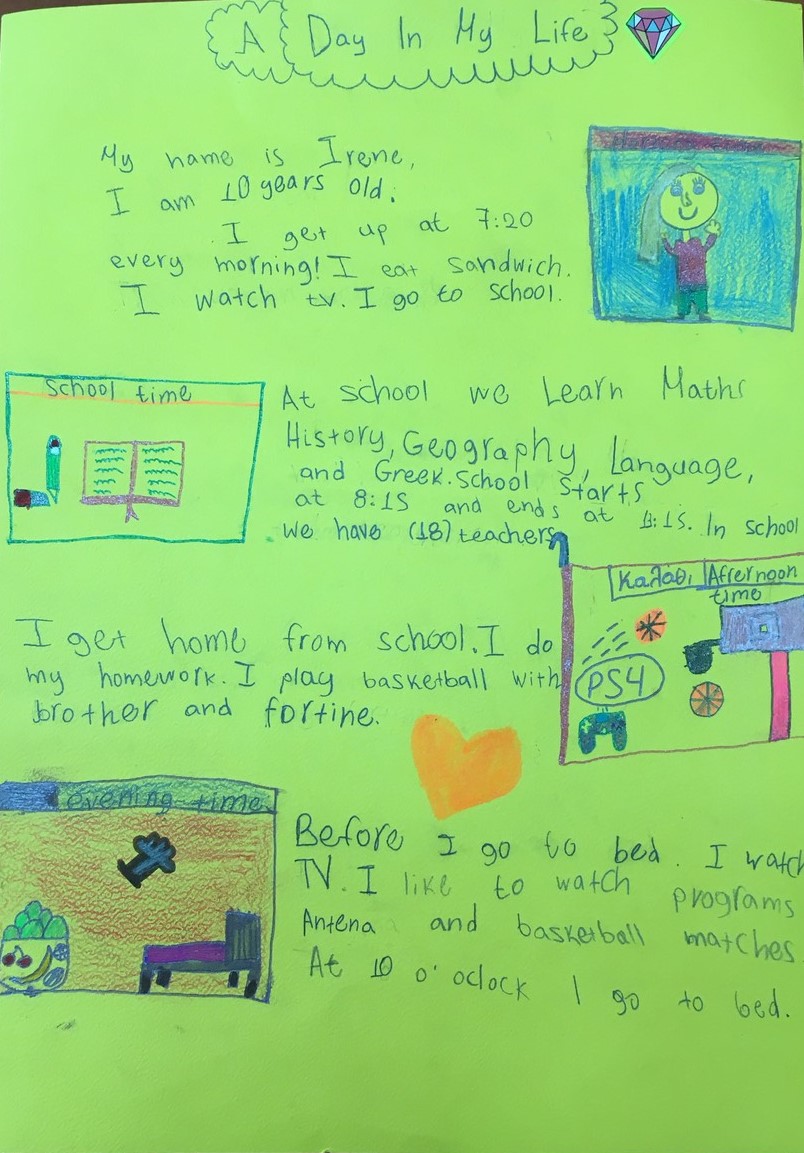 A Day In My Life
My name is Irene,
I am 10 years old.
I get up at 7:20
every morning! I eat sandwich.
I watch tv. I go to school.
School time
At school we Learn Maths
History, Geography, Language,
and Greek. School Starts
at 8:15 and ends at 1:15. In school
we have (18) teachers
Καλάθι Afternoon
time
PS4
I get home from school. I do
my homework. I play basketball with
brother and fortine.
evening time
Before I go to bed. I watch
TV. I like to watch programs
Antena and basketball matches
At 10 o'oclock I go to bed.